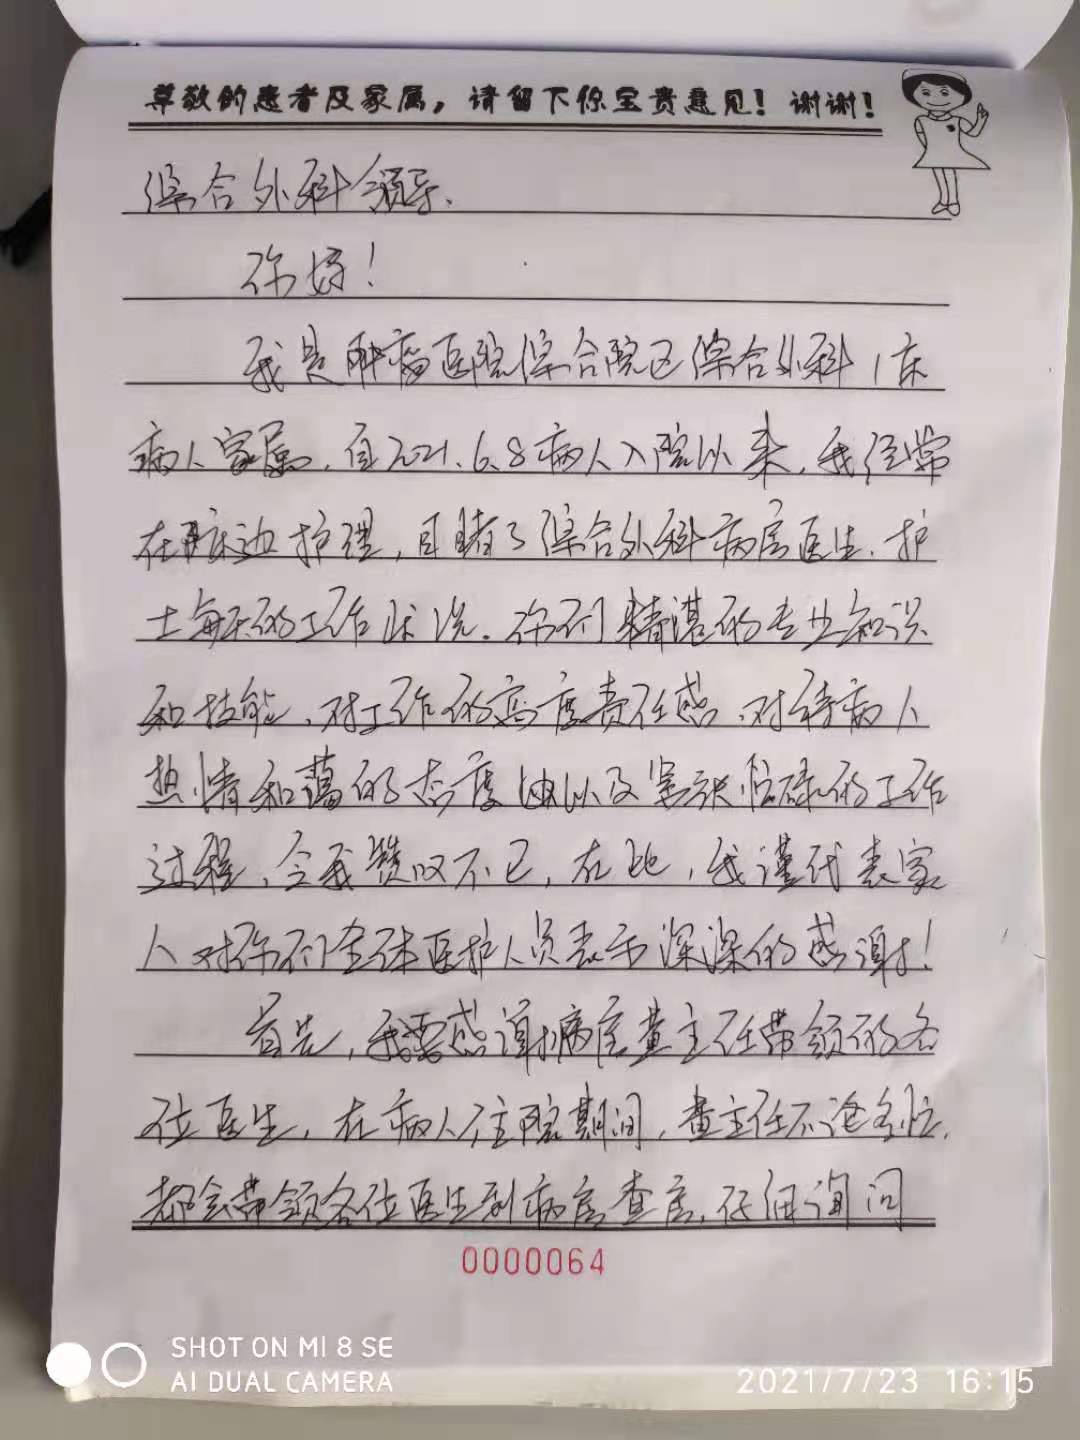 尊敬的患者及家属，请留下你宝贵意见！谢谢！
综合外科领导、
你好！
我是肿瘤医院综合院区综合外科1床
病人家属，自2021.6.8病人入院以来，我经常
在床边护理，目睹了综合外科病房医生、护
士每天的工作状况。你们精湛的专业知识
和技能、对工作的高度责任感、对待病人
热情和蔼的态度以及紧张忙碌的工作
过程、令我赞叹不已，在此，我谨代表家
人对你们全体医护人员表示深深的感谢！
首先，我要感谢病房主任带领的各
位医生，在病人住院期间，主任不论多忙，
都会带领各位医生到病房查房，仔细询问
0000064
SHOT ON MI 8 SE
AI DUAL CAMERA
2021/7/23 16:15